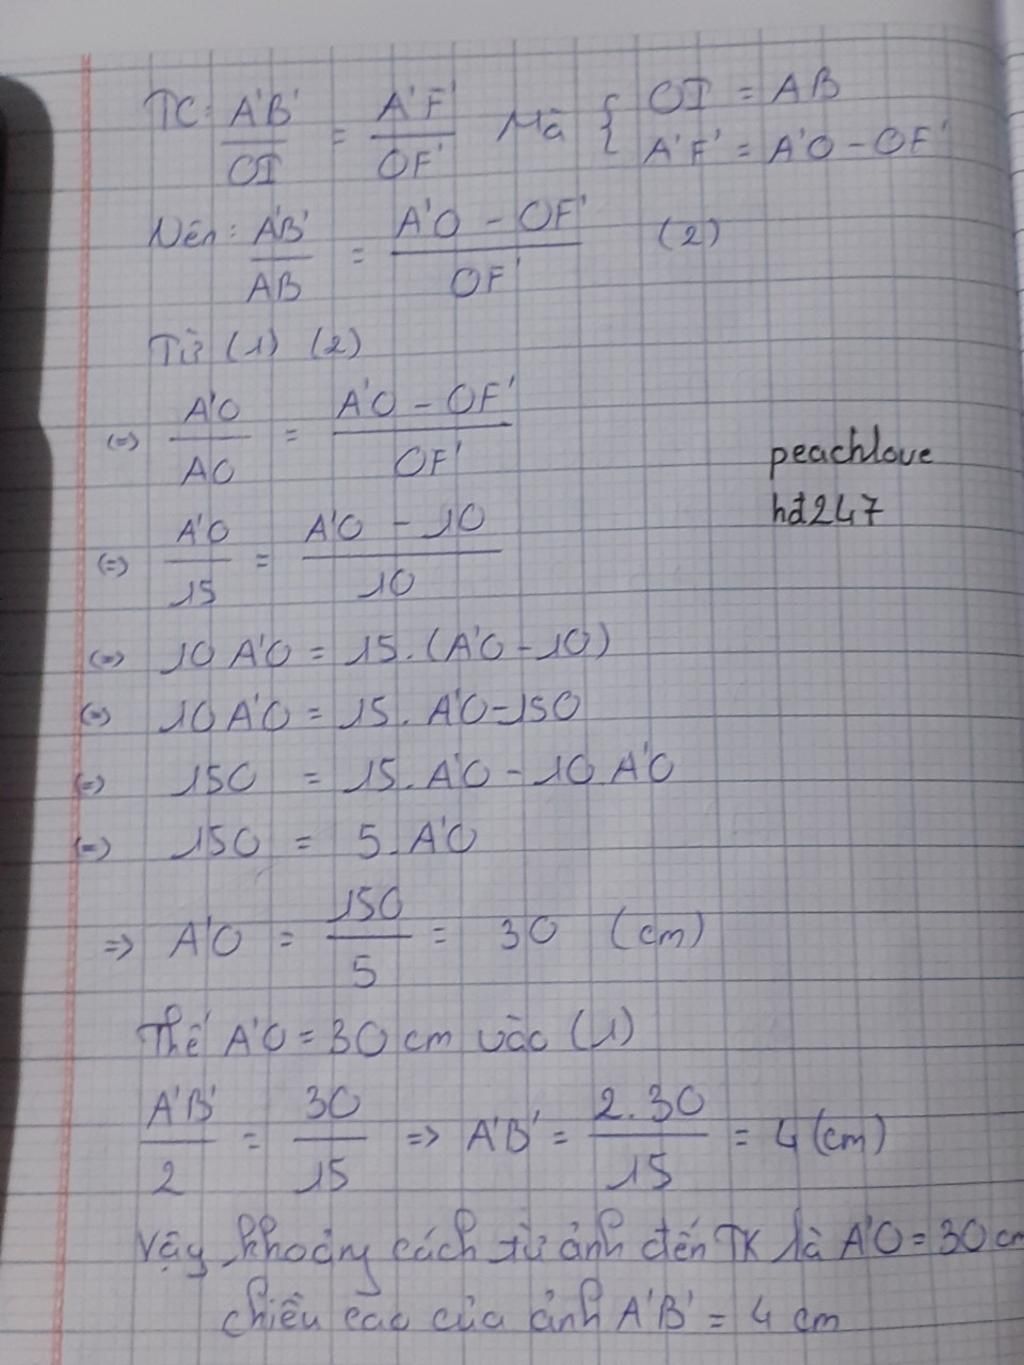 TC: A'B'/OI = A'F'/OF' Mà { OI = AB
A'F' = A'O - OF'
Nên: A'B'/AB = A'O - OF'/OF' (2)
Từ (1) (2)
(=) A'O/AO = A'O - OF'/OF'
peachlove
hđ247
(=) A'O/15 = A'O - 10/10
(=) 10 A'O = 15.(A'O - 10)
(=) 10 A'O = 15. A'O - 150
(=) 150 = 15. A'O - 10 A'O
(=) 150 = 5. A'O
=> A'O = 150/5 = 30 (cm)
Thế A'O = 30 cm vào (1)
A'B'/2 = 30/15 => A'B' = 2.30/15 = 4 (cm)
Vậy khoảng cách từ ảnh đến TK là A'O = 30 cm
chiều cao của ảnh A'B' = 4 cm